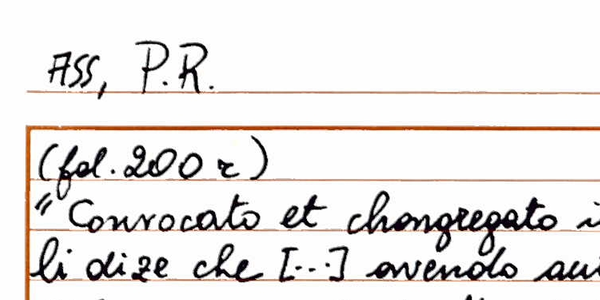 ASS, P.R.
(fol. 200 r)
"Convocato et chongregato
li dize che [...] avendo